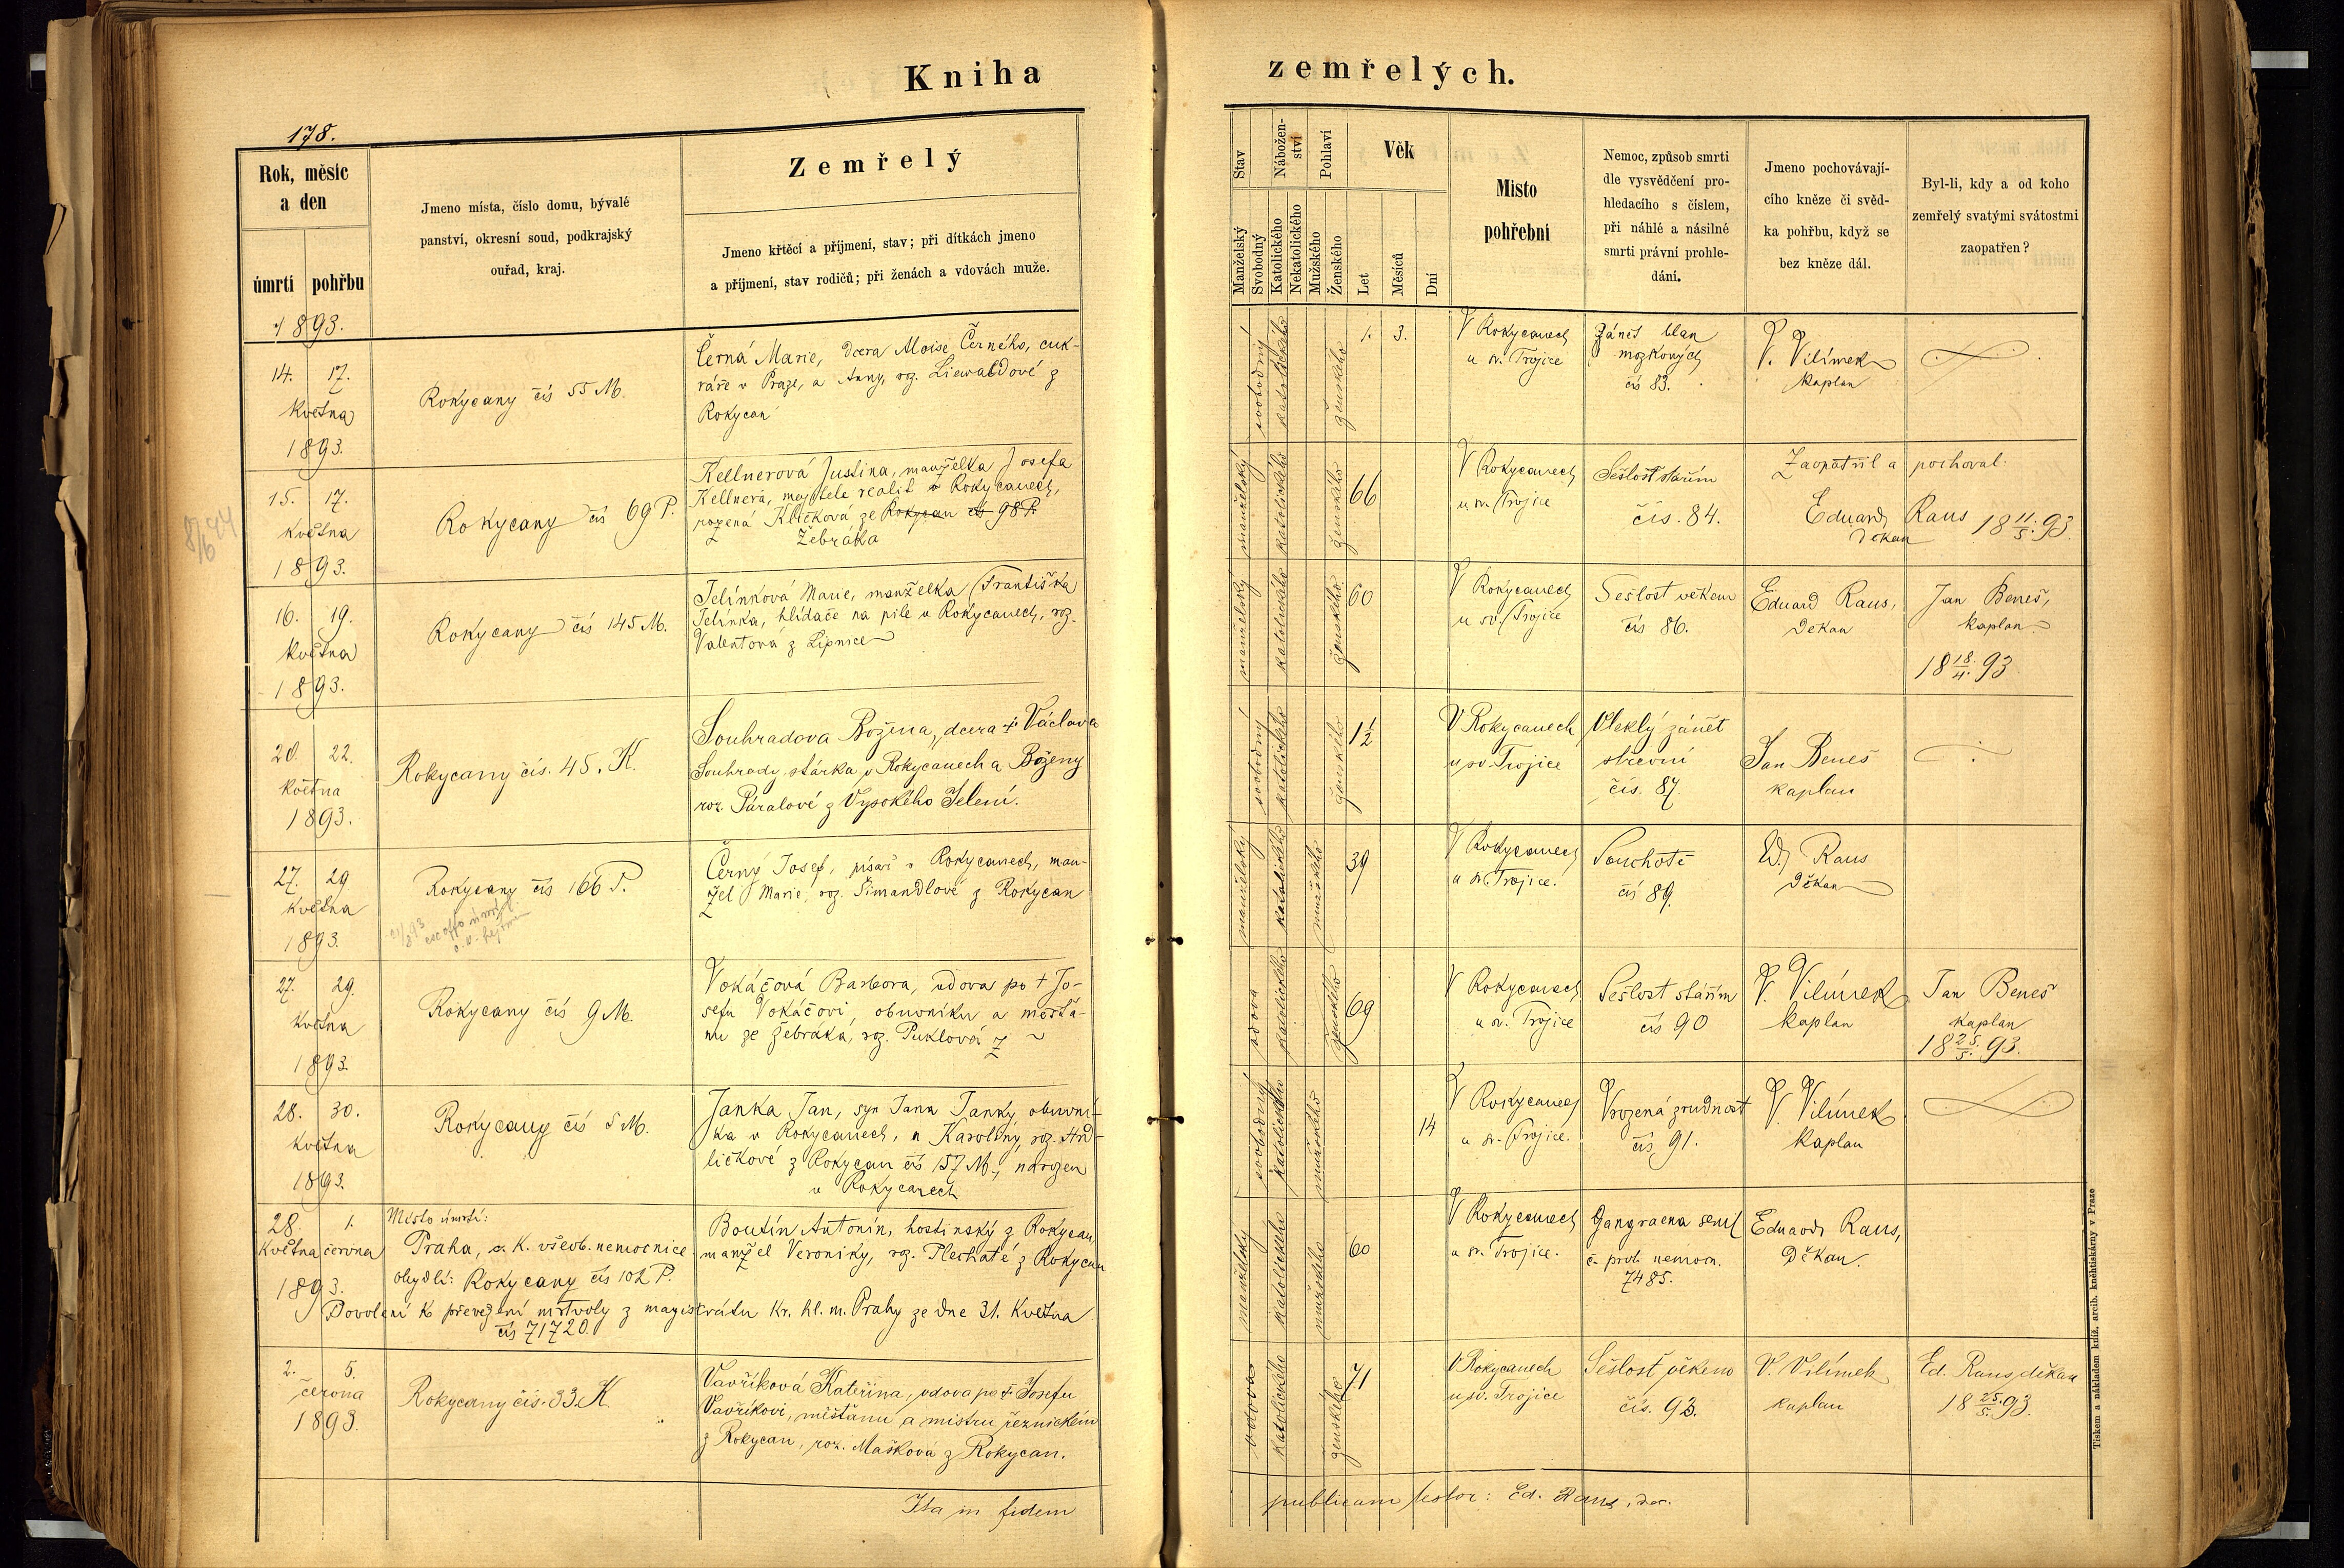 Kniha
zemřelých.
178.
Rok, měsíc
a den
úmrtí
pohřbu
Jmeno místa, číslo domu, bývalé
panství, okresní soud, podkrajský
ouřad, kraj.
Zemřelý
Jmeno křtěcí a příjmení, stav; při dítkách jmeno
a příjmení, stav rodičů; při ženách a vdovách muže.
Stav
Manželský
Svobodný
Nábožen-
ství
Katolického
Nekatolického
Pohlaví
Mužského
Ženského
Věk
Let
Měsíců
Dní
Místo
pohřební
Nemoc, způsob smrti
dle vysvědčení pro-
hledacího s číslem,
při náhlé a násilné
smrti právní prohle-
dání.
Jmeno pochovávají-
cího kněze či svěd-
ka pohřbu, když se
bez kněze dál.
Byl-li, kdy a od koho
zemřelý svatými svátostmi
zaopatřen?
1893.
14. 17.
Května
1893.
Rokycany čís 55 M.
Černá Marie, dcera Aloise Černého, cuk-
ráře v Praze, a Anny, roz. Liewaldové z
Rokycan
svobodný
katolického
ženského
1. 3.
V Rokycanech
u sv. Trojice
Zánět blan
mozkových
čís 83.
V. Vilímek
kaplan
15. 17.
Května
1893.
Rokycany čís 69 P.
Kellnerová Justina, manželka Josefa
Kellnera, majitele realit v Rokycanech,
rozená Kličková ze Rokycan čís 98 P.
Žebráka
manželský
katolického
ženského
66
V Rokycanech
u sv. Trojice
Sešlost stářím
čís. 84.
Zaopatřil a pochoval
Eduard Raus 18 11./5. 93.
Děkan
16. 19.
Května
1893.
Rokycany čís 145 M.
Jelínková Marie, manželka Františka
Jelínka, hlídače na pile v Rokycanech, roz.
Valentová z Lipnice
manželský
katolického
ženského
60
V Rokycanech
u sv. Trojice
Sešlost věkem
čís 86.
Eduard Raus,
Děkan
Jan Beneš,
kaplan
18 18./4. 93
20. 22.
Května
1893.
Rokycany čís. 45. K.
Souhradova Božena, dcera † Václava
Souhrady, stárka v Rokycanech a Boženy
roz. Páralové z Vysokého Jelení.
svobodný
katolického
ženského
1 1/2
V Rokycanech
u sv. Trojice
Vleklý zánět
střevní
čís. 87.
Jan Beneš
kaplan
27. 29
Května
1893.
Rokycany čís 166 P.
Černý Josef, písař v Rokycanech, man-
žel Marie, roz. Šimandlové z Rokycan
manželský
katolického
mužského
39
V Rokycanech
u sv. Trojice.
Souchotě
čís 89.
Ed. Raus
Děkan
27. 29.
Května
1893.
Rokycany čís 9 M.
Vokáčová Barbora, vdova po † Jo-
sefu Vokáčovi, obuvníku a měšťa-
nu ze Žebráka, roz. Puklová z
vdova
katolického
ženského
69
V Rokycanech
u sv. Trojice
Sešlost stářím
čís 90
V. Vilímek
kaplan
Jan Beneš
kaplan
18 25./5. 93.
28. 30.
Května
1893.
Rokycany čís 5 M.
Janka Jan, syn Jana Janky, obuvní-
ka v Rokycanech, a Karoliny, roz. Hrd-
ličkové z Rokycan čís 157 M., narozen
v Rokycanech
svobodný
katolického
mužského
14
V Rokycanech
u sv. Trojice.
Vrozená zrudnost
čís 91.
V. Vilímek
kaplan
28. 1.
Května června
1893.
Místo úmrtí:
Praha, c. k. všeob. nemocnice
obydlí: Rokycany čís 102 P.
Boutín Antonín, hostinský z Rokycan,
manžel Veroniky, roz. Plechaté z Rokycan
Dovolení k převezení mrtvoly z magistrátu kr. hl. m. Prahy ze dne 31. Května
čís 71720.
manželský
katolického
mužského
60
V Rokycanech
u sv. Trojice.
Gangraena senil
č. prot. nemocn.
7485.
Eduard Raus,
Děkan.
2. 5.
června
1893.
Rokycany čís. 33. K.
Vavříková Kateřina, vdova po † Josefu
Vavříkovi, měšťanu a mistru řeznickém
z Rokycan, roz. Mašková z Rokycan.
vdova
katolického
ženského
71
V Rokycanech
u sv. Trojice
Sešlost věkem
čís. 93.
V. Vilímek
kaplan
Ed. Raus, děkan
18 25./5. 93.
Ita in fidem
publicam testor: Ed. Raus, dec.
Tiskem a nákladem kníž. arcib. knihtiskárny v Praze